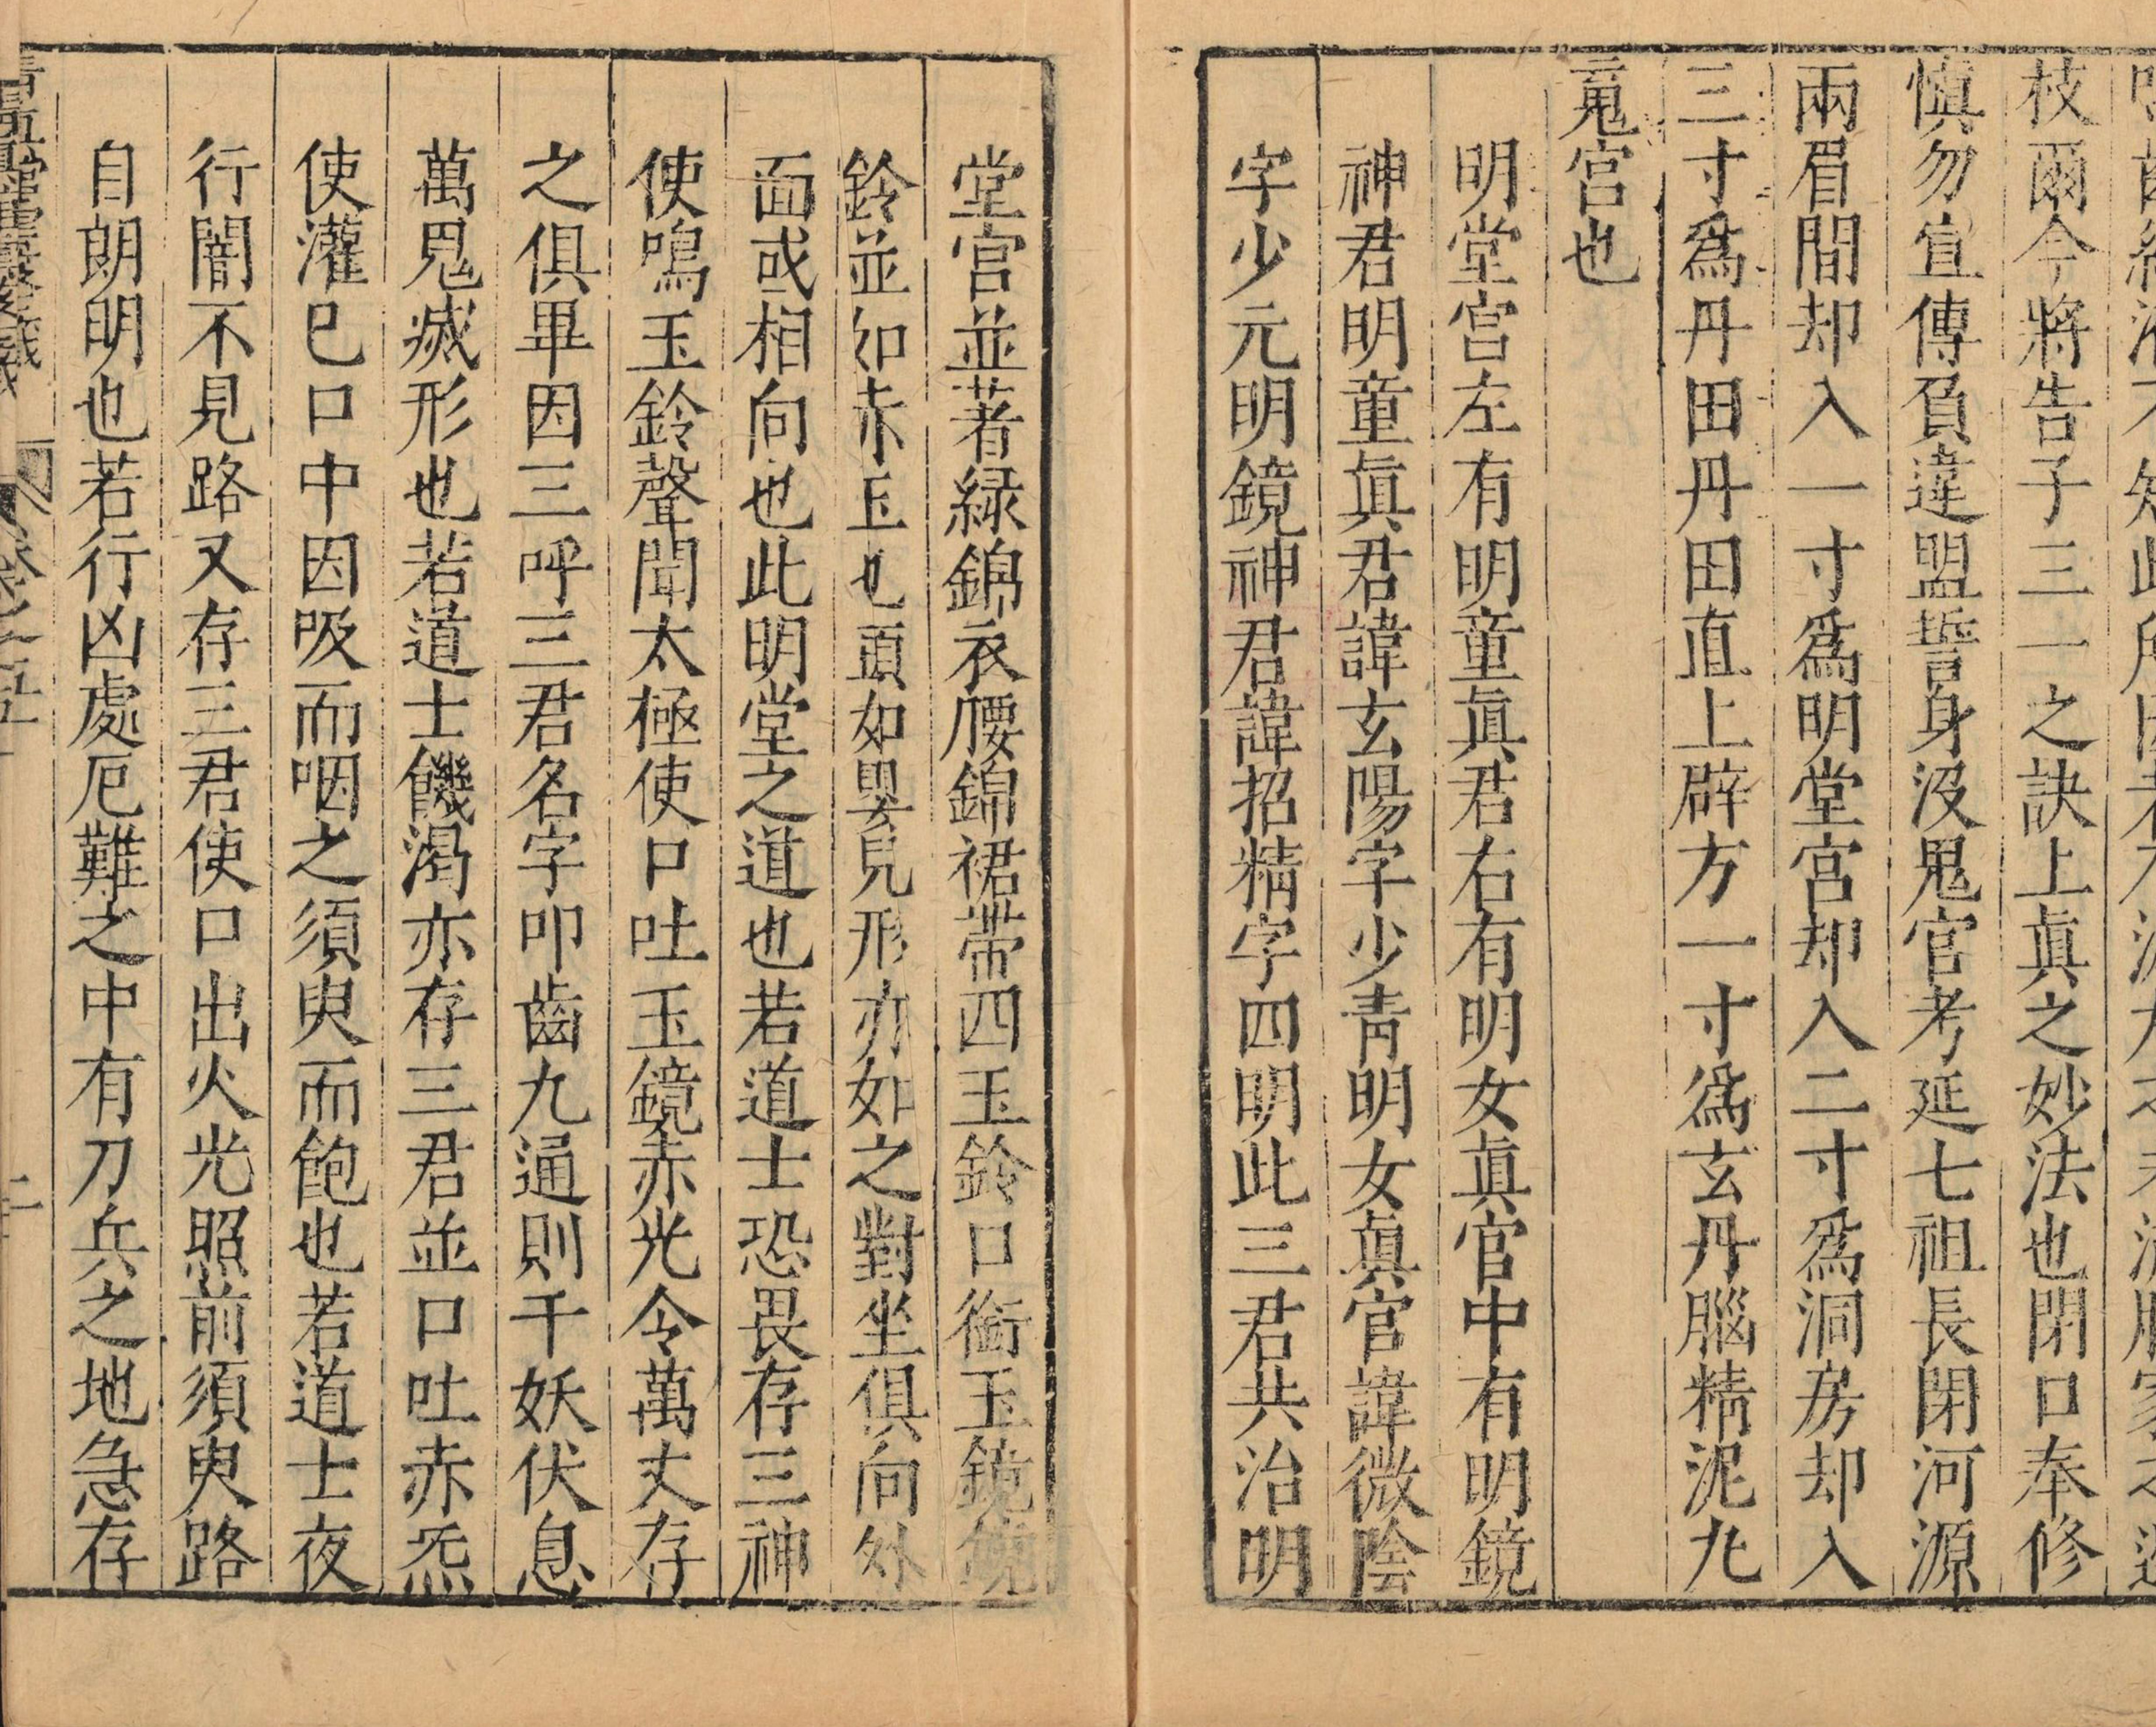 枝爾今將告子三一之訣上眞之妙法也閉口奉修
愼勿宣傳負違盟誓身沒鬼官考延七祖長閉河源
兩眉間却入一寸爲明堂宮却入二寸爲洞房却入
三寸爲丹田丹田直上辟方一寸爲玄丹腦精泥丸
䰟宮也
明堂宮左有明童眞君右有明女眞官中有明鏡
神君明童眞君諱玄陽字少靑明女眞官諱微陰
字少元明鏡神君諱照精字四明此三君共治明
堂宮並著緑錦衣腰錦裙帶四玉鈴口銜玉鏡鏡
鈴並如赤玉也頭如嬰兒形亦如之對坐俱向外
面或相向也此明堂之道也若道士恐畏存三神
使鳴玉鈴聲聞太極使口吐玉鏡赤光令萬丈存
之俱畢因三呼三君名字叩齒九通則千妖伏息
萬鬼滅形也若道士饑渴亦存三君並口吐赤炁
使灌已口中因吸而咽之須臾而飽也若道士夜
行闇不見路又存三君使口出火光照前須臾路
自朗明也若行凶處厄難之中有刀兵之地急存
二